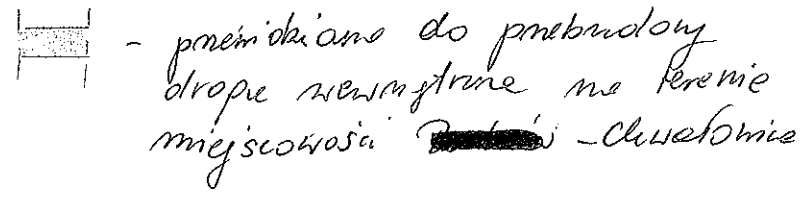 - przewidziane do przebudowy
drogi wewnętrzne na terenie
miejscowości - Chwałowice